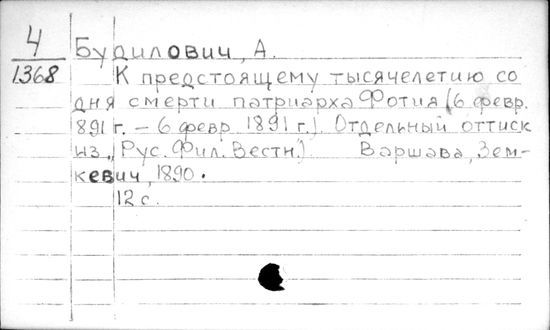 4
1368
Будилович, А.
К предстоящему тысячелетию со
дня смерти патриарха Фотия (6 февр.
891 г. – 6 февр. 1891 г.). Отдельный оттиск
из „Рус. Фил. Вестн.). Варшава, Зем-
кевич, 1890.
12 с.